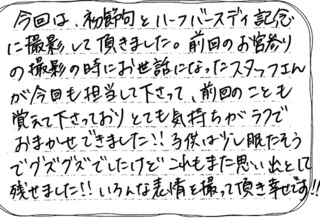 今回は、初節句とハーフバースディ記念
に撮影して頂きました。前回のお宮参り
の撮影の時にお世話になったスタッフさん
が今回も担当して下さって、前回のことも
覚えて下さっておりとても気持ちがラクで
おまかせできました!! 子供は少し眠たそう
でグズグズでしたけどこれもまた思い出として
残せました!! いろんな表情を撮って頂き幸せです!!